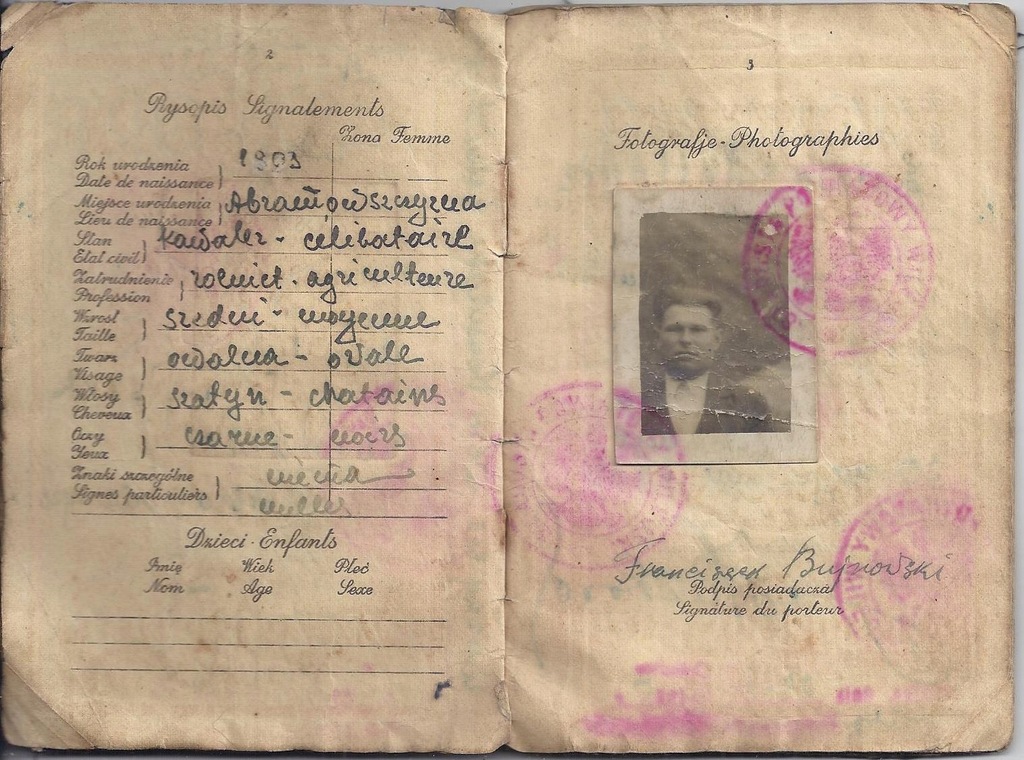 2
Rysopis Signalements
Żona Femme
Rok urodzenia
Date de naissance
1903
Miejsce urodzenia
Lieu de naissance
Abramowszczyzna
Stan
Etat civil
kawaler - celibataire
Zatrudnienie
Profession
rolnict - agriculteure
Wzrost
Taille
średni - moyenne
Twarz
Visage
owalna - ovale
Włosy
Cheveux
szatyn - chatains
Oczy
Yeux
czarne - noirs
Znaki szczególne
Signes particuliers
niema
nulles
Dzieci - Enfants
Imię Wiek Płeć
Nom Age Sexe
3
Fotografje - Photographies
Franciszek Bujnowski
Podpis posiadacza
Signature du porteur